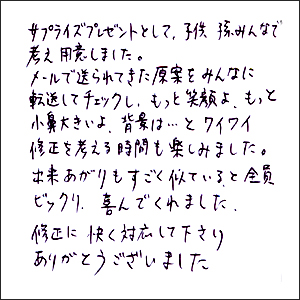 サプライズプレゼントとして、子供 孫みんなで
考え用意しました。
メールで送られてきた原案をみんなに
転送してチェックし、もっと笑顔よ、もっと
小鼻大きいよ、背景は…とワイワイ
修正を考える時間も楽しみました。
出来あがりもすごく似ていると全員
ビックリ、喜んでくれました、
修正に快く対応して下さり
ありがとうございました